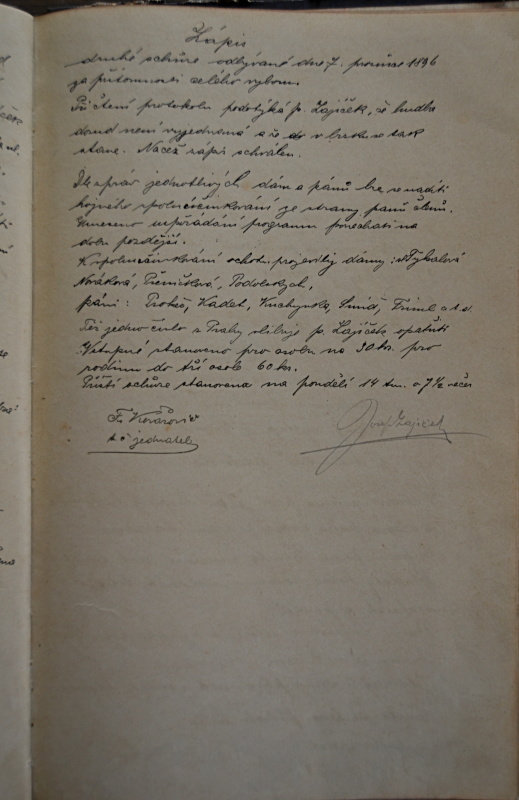 Zápis
druhé schůze odbývané dne 7. prosince 1896
za přítomnosti celého výboru.
Při čtení protokolu podotýká p. Zajíček, že hudba
dosud není vyjednaná a že do v brzku se tak
stane. Načež zápis schválen.
Dle zpráv jednotlivých dám a pánů lze se nadíti
hojného spoluúčinkování ze strany pánů členů.
Usneseno uspořádání programu ponechati na
dobu pozdější.
K spoluúčinkování ochot. projevily dámy:
Nováková, Pšeničková, Podolských,
páni: Prokeš, Kadet, Kuchynka, Šmíd, Friml a t. d.
Též jedno číslo z Prahy slibuje p. Zajíček opatřiti
Vstupné stanoveno pro osobu na 30 kr. pro
rodinu do tří osob 60 kr.
Příští schůze stanovena na pondělí 14 t.m. o 7½ večer
Fr.
t. č. jednatel
Josef Zajíček